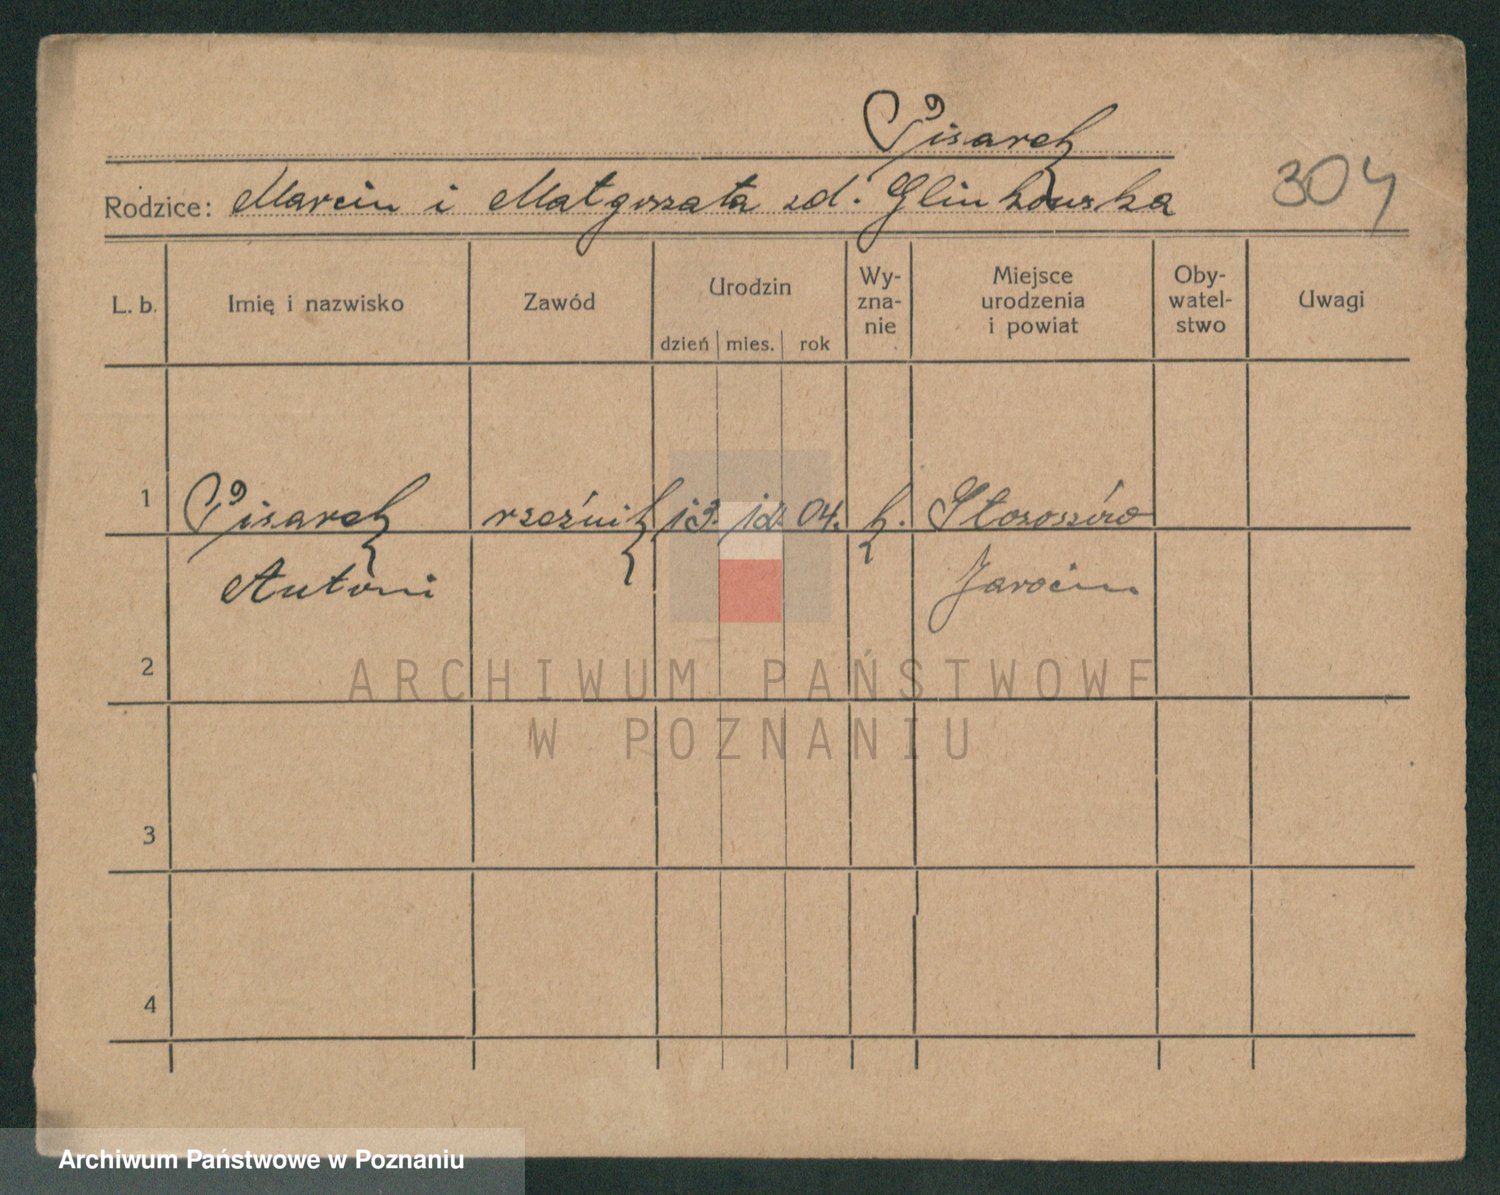 Pisarek
Rodzice: Marcin i Małgorzata zd. Glinkowska
304
L. b. Imię i nazwisko Zawód Urodzin dzień mies. rok Wy-zna-nie Miejsce urodzenia i powiat Oby-watel-stwo Uwagi
1 Pisarek rzeźnik 13. 04. k.
Antoni Jarocin
2
ARCHIWUM PAŃSTWOWE
W POZNANIU
3
4
Archiwum Państwowe w Poznaniu